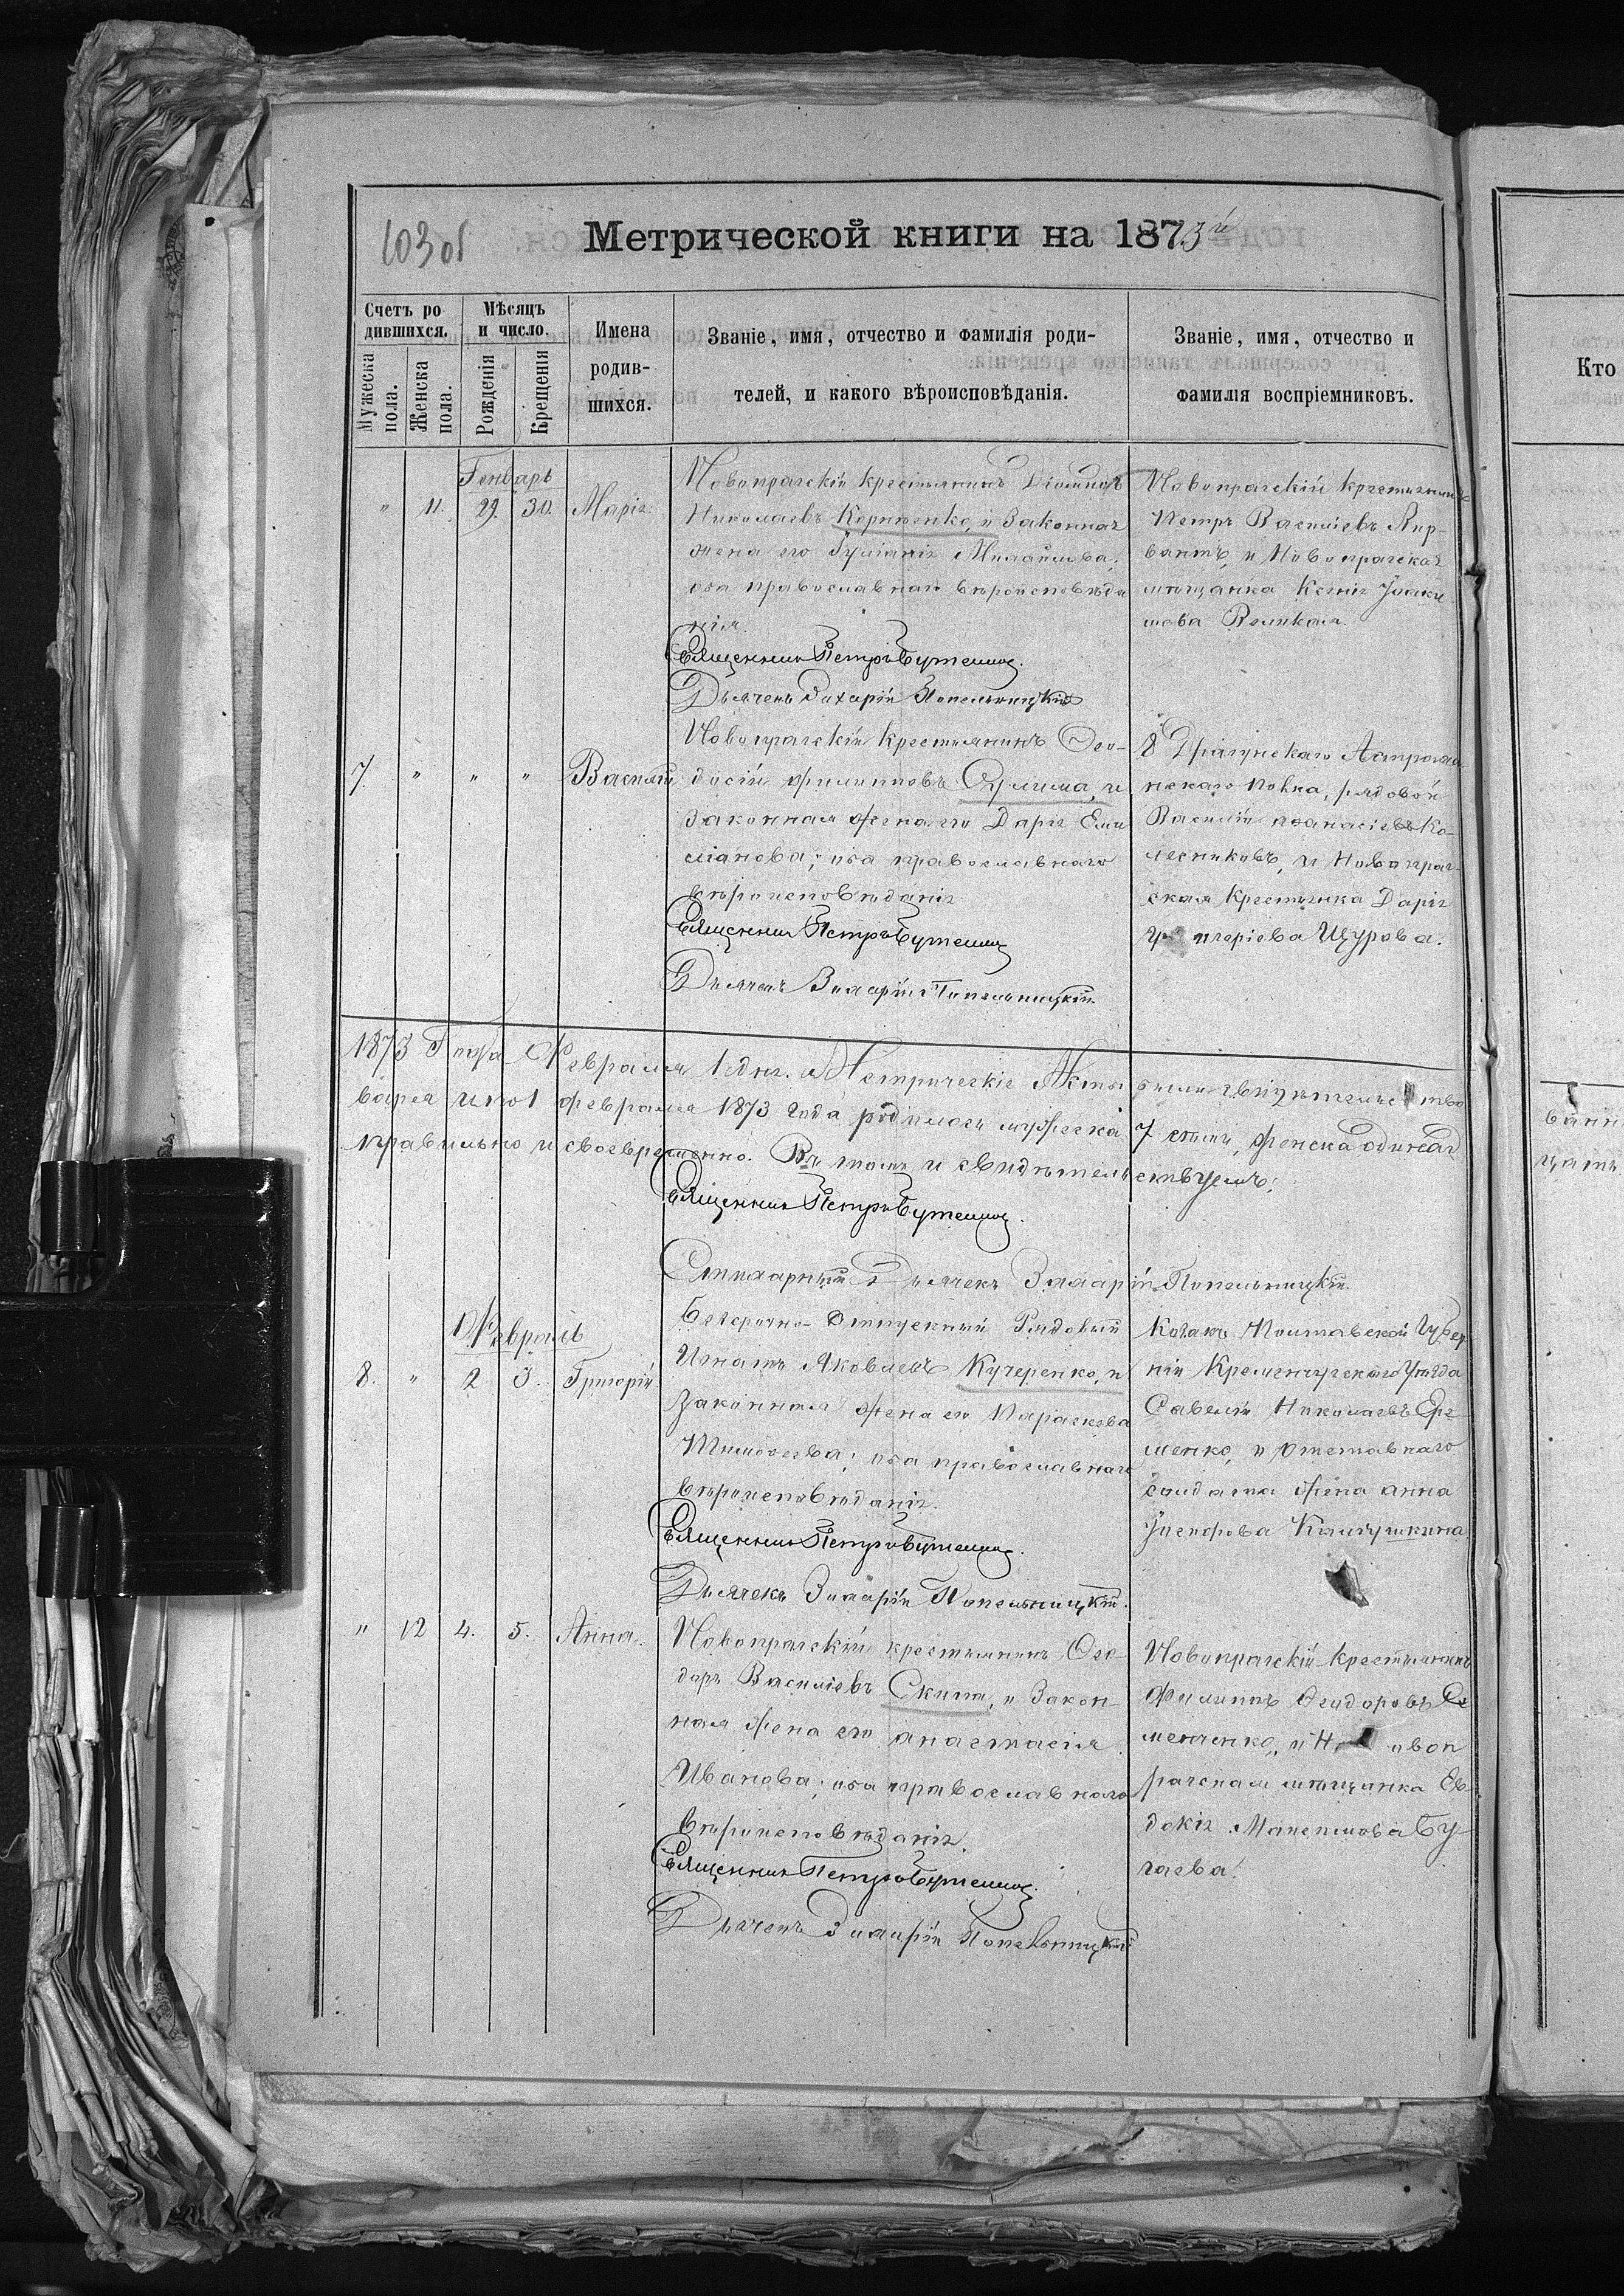 103 об
Метрической книги на 1873й
Счетъ ро-
дившихся.
Мужеска пола.
Женска пола.
Мѣсяцъ
и число.
Рожденія
Крещенія
Имена
родив-
шихся.
Званіе, имя, отчество и фамилія роди-
телей, и какого вѣроисповѣданія.
Званіе, имя, отчество и
фамилія воспріемниковъ.
Кто
Генварь
" 11. 29. 30. Марія.
Новопрагскій крестьянинъ Діомидъ
Николаевъ Корниенко, и Законная
жена его Іуліанія Михайлова;
оба православнаго вѣроисповѣда
нія.
Священникъ Петръ
Дьячекъ Захарій Попельницкій
Новопрагскій крестьянинъ
Петръ Василіевъ
и Новопрагская
мѣщанка Ксенія
Великая.
7. " " " Василій
Новопрагскій крестьянинъ Ѳео-
досій Филипповъ и
Законная жена его Дарія Еми
ліанова; оба православнаго
вѣроисповѣданія
Священникъ Петръ
Дьячекъ Захарій Попельницкій.
8 Драгунскаго Астрохан
нскаго полка, рядовой
Василій Ко-
лесниковъ, и Новопраг-
ская Крестьянка Дарія
Щурова.
1873 Года Февраля 1 дня. Метрическіе Акты
1 февраля 1873 года родилось мужеска 7 семь, женска одинад
цать
правильно и своевременно. Въ томъ и свидѣтельствуемъ;
Священникъ Петръ
Стихарный Дьячекъ Захарій Попельницкій.
Февраль
8. " 2 3. Григорій
Безсрочно-Отпускный Рядовый
Игнатъ Яковлевъ Кучеренко, и
Законная жена его Параскева
Тимоѳеева; оба православнаго
вѣроисповѣданія.
Священникъ Петръ
Дьячекъ Захарій Попельницкій.
Козакъ Полтавской Губер
ніи Кременчугскаго Уѣзда
Савелій Николаевъ Ере
менко, и отставнаго
солдата жена Анна
" 12 4. 5. Анна.
Новопрагскій крестьянинъ Ѳео-
доръ Василіевъ Скипа, и Закон-
ная жена его Анастасія
Иванова; оба православнаго
вѣроисповѣданія.
Священникъ Петръ
Дьячекъ Захарій Попельницкій
Новопрагскій крестьянинъ
Филиппъ Ѳеодоровъ Се
менченко, и Новоп
рагская мѣщанка Ев-
докія Бу
гаева.